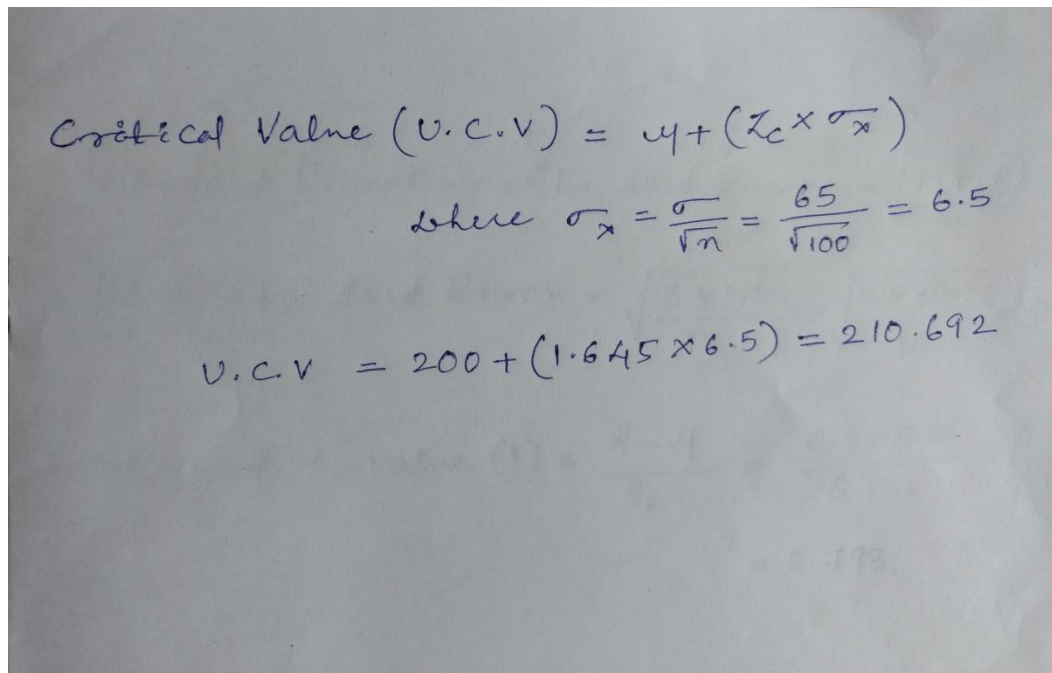 Critical Value (U.C.V) = μ + (Zc × σx̄)
where σx̄ = σ/√n = 65/√100 = 6.5
U.C.V = 200 + (1.645 × 6.5) = 210.692